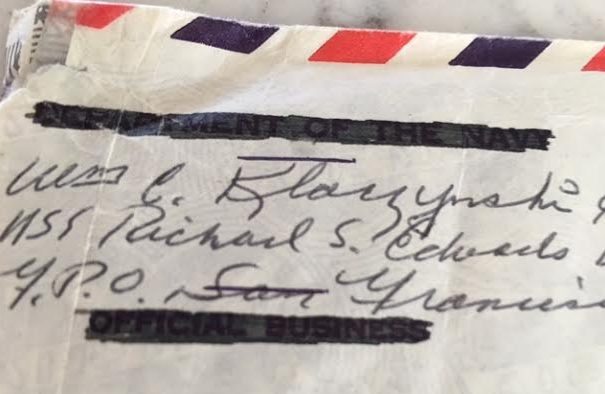 DEPARTMENT OF THE NAVY
Wm C. Klaczynski
USS Richard S. Edwards
F.P.O. San Francis
OFFICIAL BUSINESS